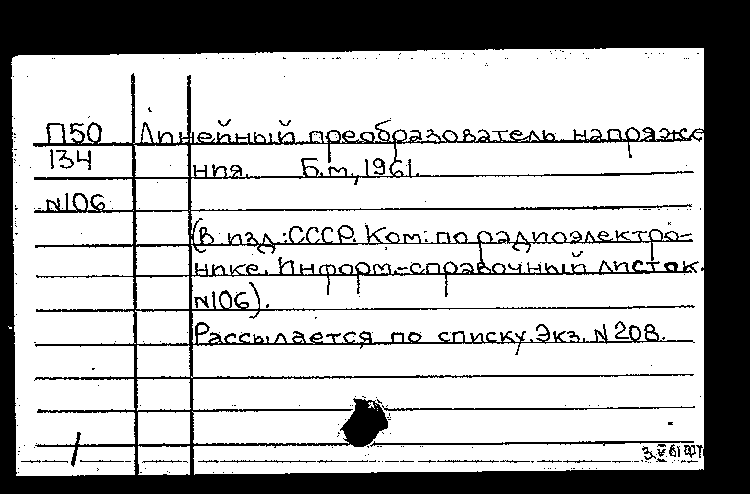 П50 Линейный преобразователь напряже
134 ния. Б.м., 1961.
N106
(В изд.: СССР. Ком. по радиоэлектро-
нике. Информ.-справочный листок.
N106).
Рассылается по списку. Экз. N 208.